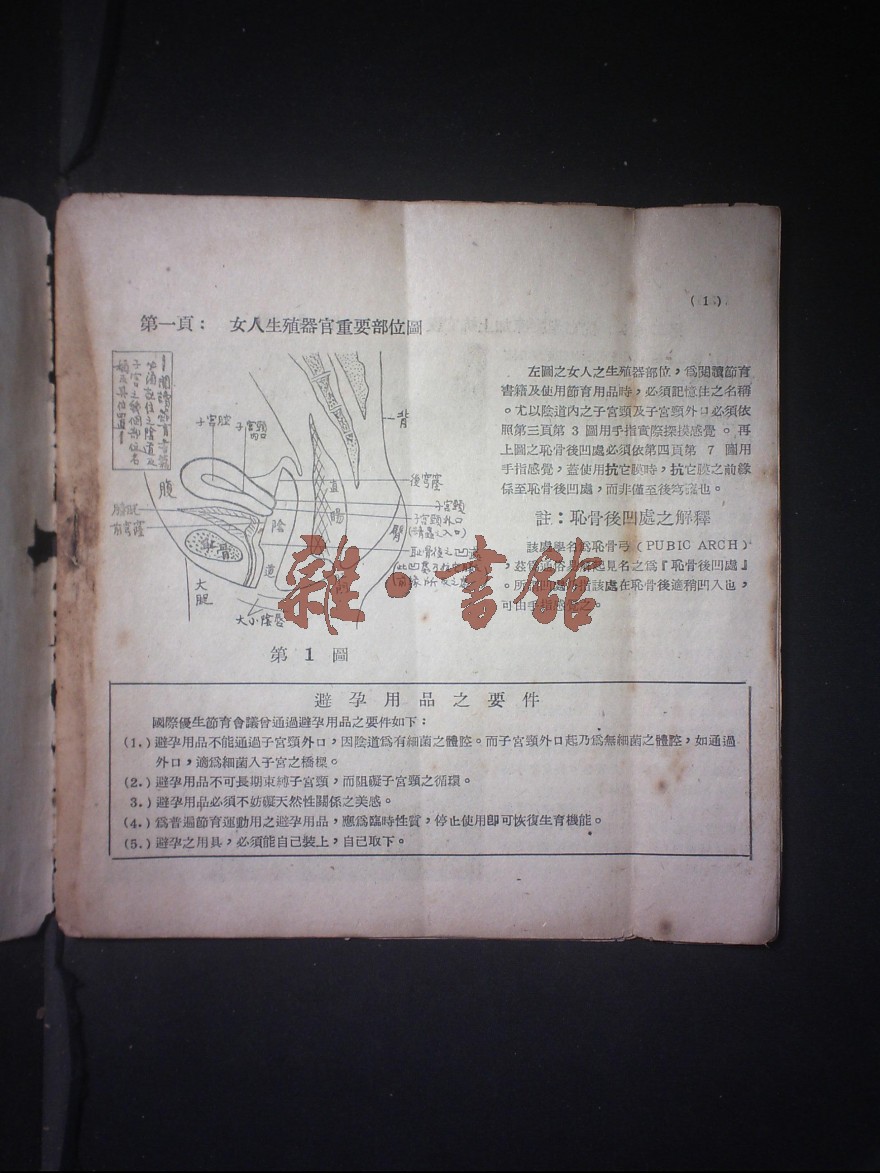 (1.)
第一頁： 女人生殖器官重要部位圖
子宮腔
子宮頸
背
腹
後穹窿
直
腸
子宮頸
子宮頸外口
前穹窿
陰
道
臀
恥骨
大
腿
大小陰唇
第 1 圖
左圖之女人之生殖器部位，爲閱讀節育
書籍及使用節育用品時，必須記憶住之名稱
。尤以陰道內之子宮頸及子宮頸外口必須依
照第三頁第 3 圖用手指實際探摸感覺。再
上圖之恥骨後凹處必須依第四頁第 7 圖用
手指感覺，蓋使用抗它膜時，抗它膜之前緣
係至恥骨後凹處，而非僅至後穹窿也。
註：恥骨後凹處之解釋
該處學名爲恥骨弓（PUBIC ARCH）
見名之爲『恥骨後凹處』
指該處在恥骨後適稍凹入也，
可由手指感覺之。
雜·書館
避孕用品之要件
國際優生節育會議曾通過避孕用品之要件如下：
(1.) 避孕用品不能通過子宮頸外口，因陰道爲有細菌之體腔。而子宮頸外口起乃爲無細菌之體腔，如通過
外口，適爲細菌入子宮之橋樑。
(2.) 避孕用品不可長期束縛子宮頸，而阻礙子宮頸之循環。
3.) 避孕用品必須不妨礙天然性關係之美感。
(4.) 爲普遍節育運動用之避孕用品，應爲臨時性質，停止使用卽可恢復生育機能。
(5.) 避孕之用具，必須能自己裝上，自己取下。